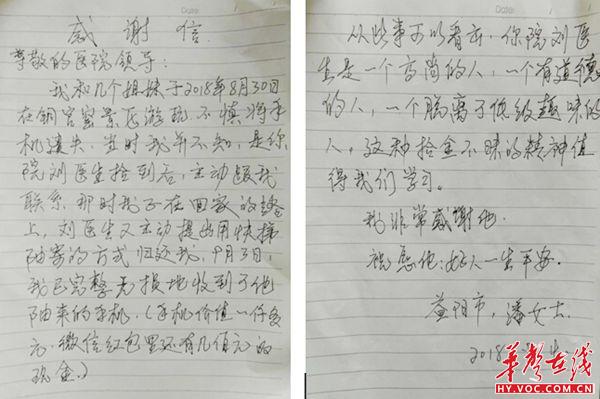 Date:
感谢信
尊敬的医院领导:
我和几个姐妹于2018年8月30日
在铜官窑景区游玩,不慎将手
机遗失,当时我并不知,是你
院刘医生捡到后,主动跟我
联系,那时我正在回家的途
上,刘医生又主动提出用快递
邮寄的方式归还我,9月3日,
我已完整无损地收到了他
邮来的手机.(手机价值一仟多
元,微信红包里还有几佰元的
现金.)
Date:
从此事可以看出,你院刘医
生是一个高尚的人,一个有道德
的人,一个脱离了低级趣味的
人,这种拾金不昧的精神值
得我们学习。
我非常感谢他.
祝愿他:好人一生平安.
益阳市,潘女士.
2018
华声在线
HY.VOC.COM.CN